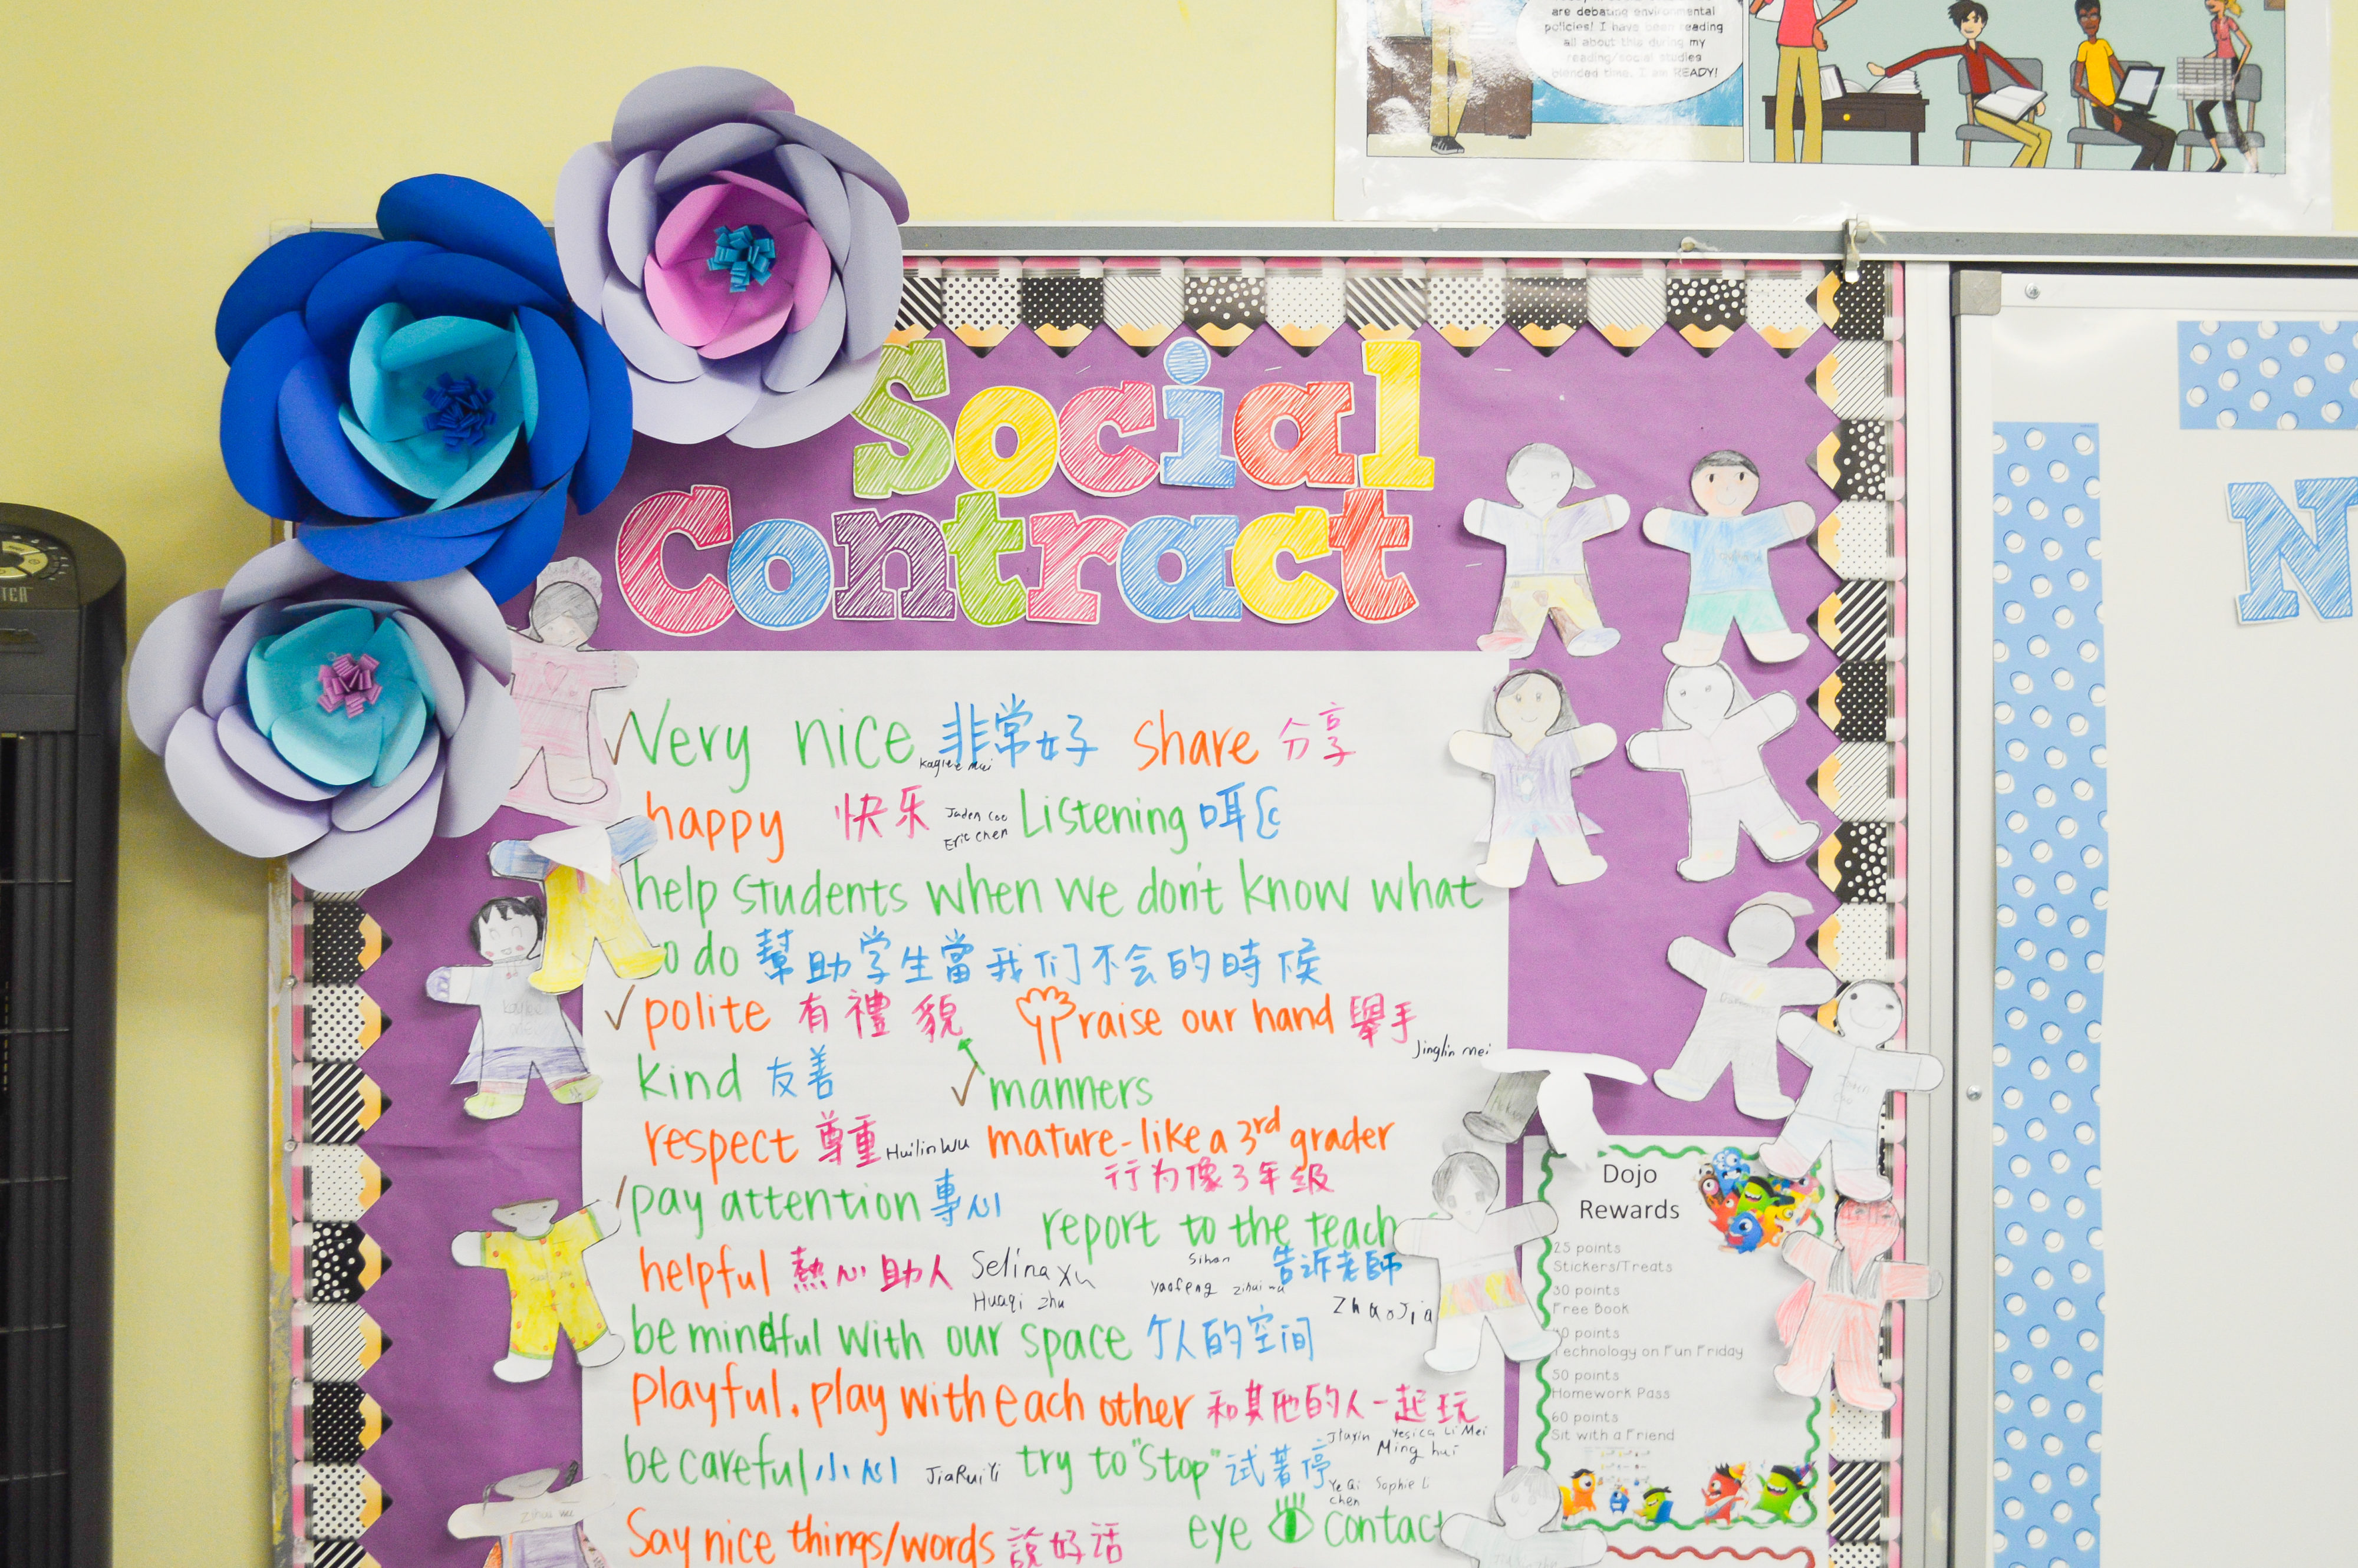 are debating environmental
policies! I have been reading
all about this during my
reading/social studies
blended time. I am READY!
Social
Contract
N
Very nice 非常好 share 分享
Kaylee Mei
happy 快乐 Jaden Cao Listening
Eric Chen
help students when we don't know what
o do 幫助学生當我们不会的時候
polite 有禮貌 raise our hand 舉手
Jinglin Mei
kind 友善 manners
respect 尊重 Huilin Wu mature-like a 3rd grader
行为像3年级
pay attention 專心
report to the teach
helpful 熱心助人 Selina Xu Sihan 告诉老師
Huaqi Zhu yaofeng zihui ZhaoJia
be mindful with our space 个人的空间
Playful, play with each other 和其他的人一起玩
Jiaxin Yesica Li Mei
Ming hui
be careful 小心 JiaRuiYi try to "Stop" 试著停
Ye Qi Sophie Li
chen
Say nice things/words 說好话 eye contact
Dojo
Rewards
25 points
Stickers/Treats
30 points
Free Book
0 points
Technology on Fun Friday
50 points
Homework Pass
60 points
Sit with a Friend